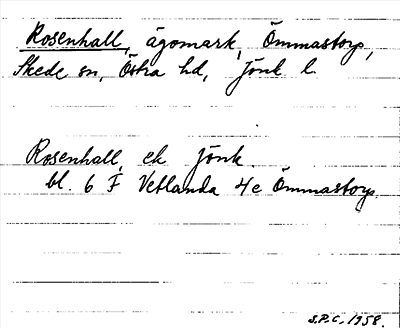 Rosenhall, ägomark, Ömmastorp,
Skede sn, Östra hd, Jönk l.
Rosenhall, ek Jönk.
bl. 6 F Vetlanda 4e Ömmastorp.
S.P.C. 1958.